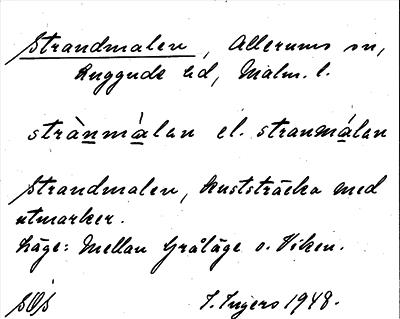 Strandmalen, Allerums sn,
Luggude hd, Malm. l.
strànmálan el. stranmálan
Strandmalen, kuststräcka med
utmarker.
Läge: Mellan Gråläge o. Viken.
SOS I. Ingers 1948.